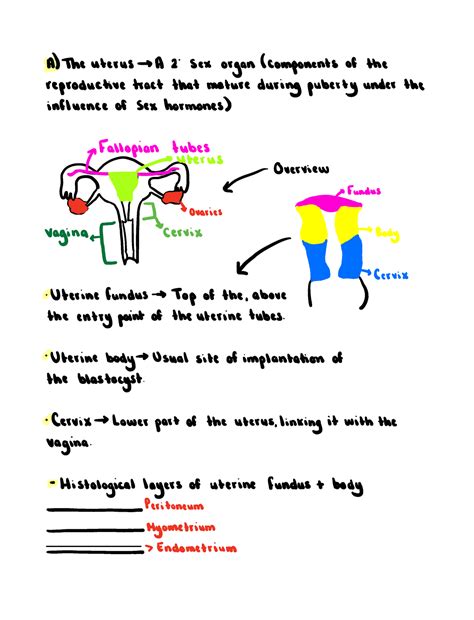 A) The uterus → A 2° Sex organ (components of the
reproductive tract that mature during puberty under the
influence of Sex hormones)
Fallopian tubes
uterus
Overview
Ovaries
Vagina
Cervix
Fundus
Body
Cervix
· Uterine fundus → Top of the, above
the entry point of the uterine tubes.
· Uterine body → Usual site of implantation of
the blastocyst.
· Cervix → Lower part of the uterus, linking it with the
vagina.
- Histological layers of uterine fundus + body
Peritoneum
Myometrium
> Endometrium